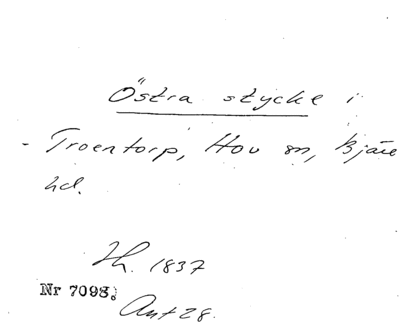 Östra stycke i
- Troentorp, Hov sn, Bjäre
hd.
Lh. 1837
Nr 7093.
Ant 28.